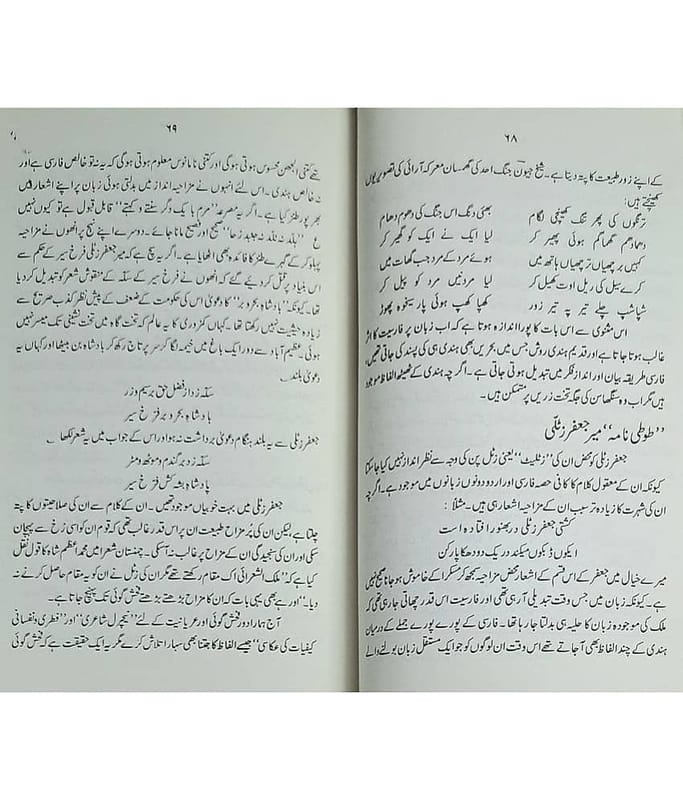 ۶۸
کے اپنے زور طبیعت کا پتہ دیتا ہے۔ شیخ جیون جنگ احد کی گھمسان معرکہ آرائی کی تصویر یوں
کھینچتے ہیں:
ترنگوں کی پھر تنگ کھینچی لگام
بھئی دنگ اس جنگ کی دھوم دھام
دھمادھم گھماگھم ہوئی پھیر کر
لیا نے ایک کو گھیر کر
کہیں برچھیاں ترچھیاں ہاتھ میں
ہوئے مرد کے مرد جب گھات میں
کرے سیل کی ریل اوت کھیل کر
لیا مردنیں مرد کو پیل کر
شپاشپ چلے تیر پہ تیر زور
کھپا کھپ ہوئی پار سینوہ پھوڑ
اس مثنوی سے اس بات کا پورا اندازہ ہوتا ہے کہ اب زبان پر فارسیت کا اثر
غالب ہوتا جاتا ہے اور قدیم ہندی روش جس میں بحریں بھی ہندی ہی کی پسند کی جاتی تھیں،
فارسی طریقہ بیان اور انداز فکر میں تبدیل ہوتی جاتی ہے۔ اگرچہ ہندی کے ٹھیٹھ الفاظ موجود
ہیں مگر اب وہ سنگھاسن کی جگہ تخت زریں پر متمکن ہیں۔
"طوطی نامہ" میر جعفر زٹلی
جعفر زٹلی کو محض ان کی "زٹلیت" یعنی زٹل پن کی وجہ سے نظر انداز نہیں کیا جا سکتا
کیونکہ ان کے معقول کلام کا کافی حصہ فارسی اور اردو دونوں زبانوں میں موجود ہے۔ اگرچہ
ان کی شہرت کا زیادہ تر سبب ان کے مزاحیہ اشعار ہی ہیں۔ مثلاً:
کشتی جعفر زٹلی در بھنور افتادہ است
ڈبکوں میکند دریک پارکن
میرے خیال میں جعفر کے اس قسم کے اشعار محض مزاحیہ سمجھ کر مسکرا کے خاموش ہو جانا صحیح نہیں
ہے۔ کیونکہ زبان میں جس وقت تبدیلی آرہی تھی اور فارسیت اس قدر چھاتی جارہی تھی کہ
ملک کی موجودہ زبان کا حلیہ ہی بدلتا جا رہا تھا۔ فارسی کے پورے پورے جملے کے درمیان
ہندی کے چند الفاظ بھی آجاتے تھے اس وقت ان لوگوں کو جو ایک مستقل زبان بولنے والے
۶۹
تھے کتنی الجھن محسوس ہوتی ہوگی اور کتنی نامانوس معلوم ہوتی ہوگی کہ یہ نہ تو خالص فارسی ہے اور
نہ خالص ہندی۔ اس لئے انہوں نے مزاحیہ انداز میں بدلتی ہوئی زبان پر اپنے اشعار میں
بھرپور طنز کیا ہے۔ اگر یہ مصرعہ قابل قبول ہے تو کیوں نہیں
صحیح اور فصیح مانا جائے۔ دوسرے اپنے نہج پر انھوں نے مزاحیہ
پہلو کر کے گہرے طنز کا فائدہ بھی اٹھایا ہے۔ اگر یہ سچ ہے کہ میر جعفر زٹلی فرخ سیر کے حکم سے
اس بنیاد پر قتل کر دیئے گئے کہ انھوں نے فرخ سیر کے سکہ کے منقوش شعر کو تبدیل کر دیا
تھا۔ کیونکہ "بادشاہ بحر و بر" کا دعویٰ اس کی حکومت کے ضعف کے پیش نظر کذب صریح سے
زیادہ حیثیت نہیں رکھتا تھا۔ کہاں کمزوری کا یہ عالم کہ تخت گاہ میں تخت نشینی تک میسر نہیں
ہوئی۔ عظیم آباد سے دور ایک باغ میں خیمہ لگا کر سر پر تاج رکھ کر بادشاہ بن بیٹھا اور کہاں یہ
دعویٰ بلند ے
سکہ زد از فضل حق بر سیم و زر
بادشاہ بحر و بر فرخ سیر
جعفر زٹلی سے یہ بلند بانگ دعویٰ برداشت نہ ہوا اور اس کے جواب میں یہ شعر لکھا ے
سکہ زد بر گندم و موٹھ و مٹر
پادشاہ پشہ کش فرخ سیر
جعفر زٹلی میں بہت خوبیاں موجود تھیں۔ ان کے کلام سے ان کی صلاحیتوں کا پتہ
چلتا ہے لیکن ان کی پُر مزاح طبیعت ان پر اس قدر غالب تھی کہ قوم ان کو اسی رخ سے پہچان
سکی اور ان کی سنجیدگی ان کے مزاح پر غالب نہ آسکی۔ چمنستان شعرا میں محمد اعظم شاہ کا قول نقل
کیا ہے کہ "ملک الشعرائی اک مقام رکھتے تھے مگر ان کی زٹل نے ان کو یہ مقام حاصل کرنے نہ
دیا۔" اور ہے بھی یہی بات کہ ان کا مزاح بڑھتے بڑھتے فحش گوئی تک پہنچ جاتا ہے۔
آج ہمارا دور فحش گوئی اور عریانیت کے لئے "نیچرل شاعری" اور "فطری و نفسانی
کیفیات کی عکاسی" جیسے الفاظ کا جتنا بھی سہارا تلاش کرے مگر یہ ایک حقیقت ہے کہ فحش گوئی